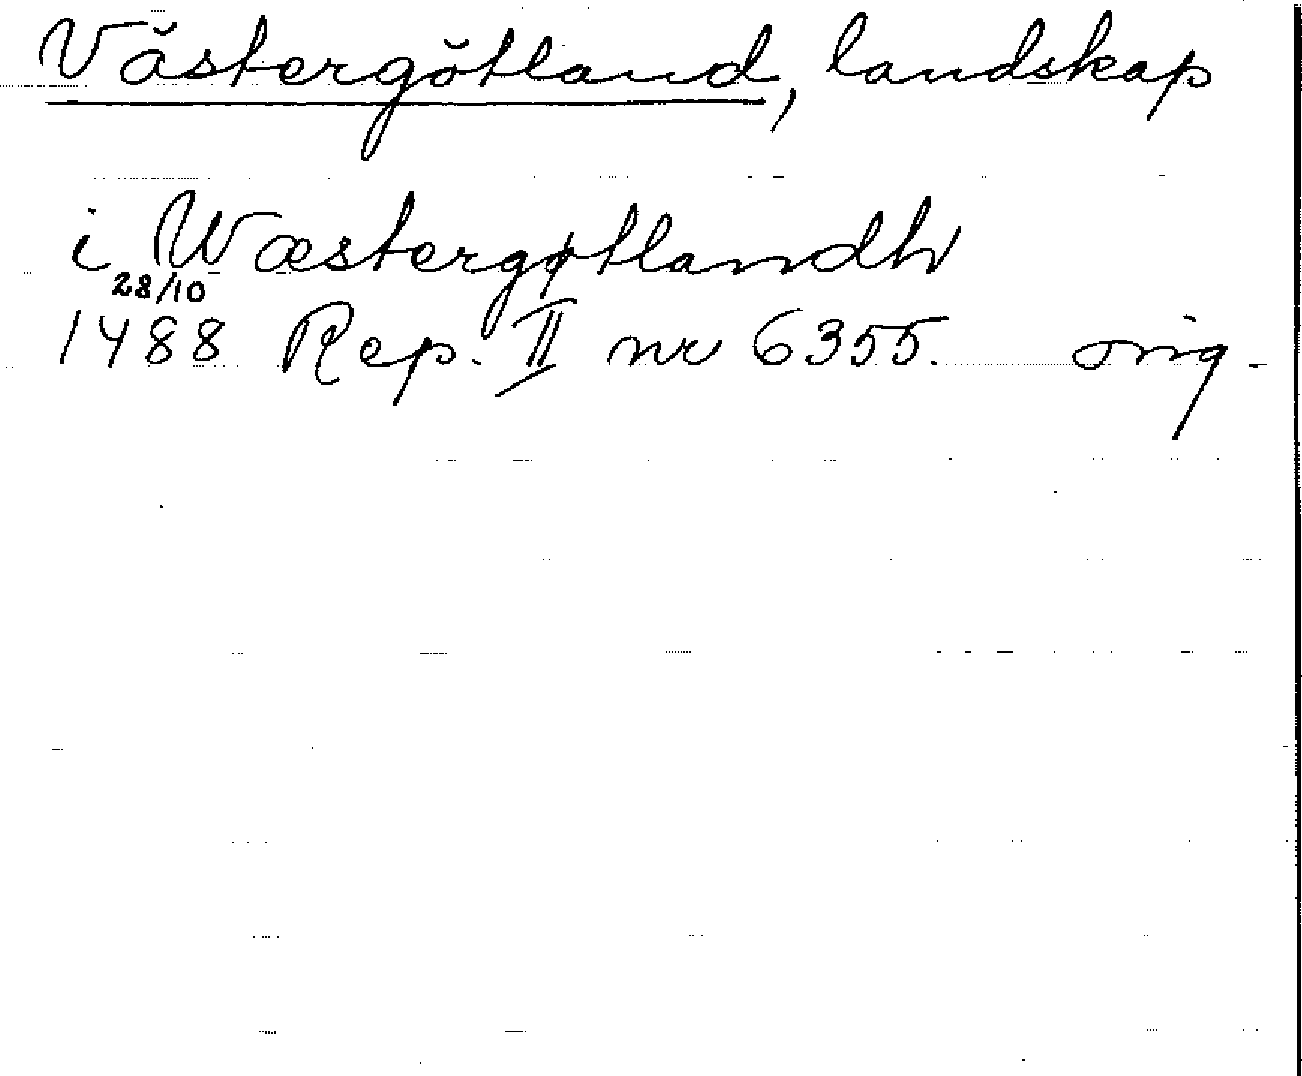 Västergötland, landskap
i Wæstergøtlandh
28/10
1488 Rep. II nr 6355. orig.